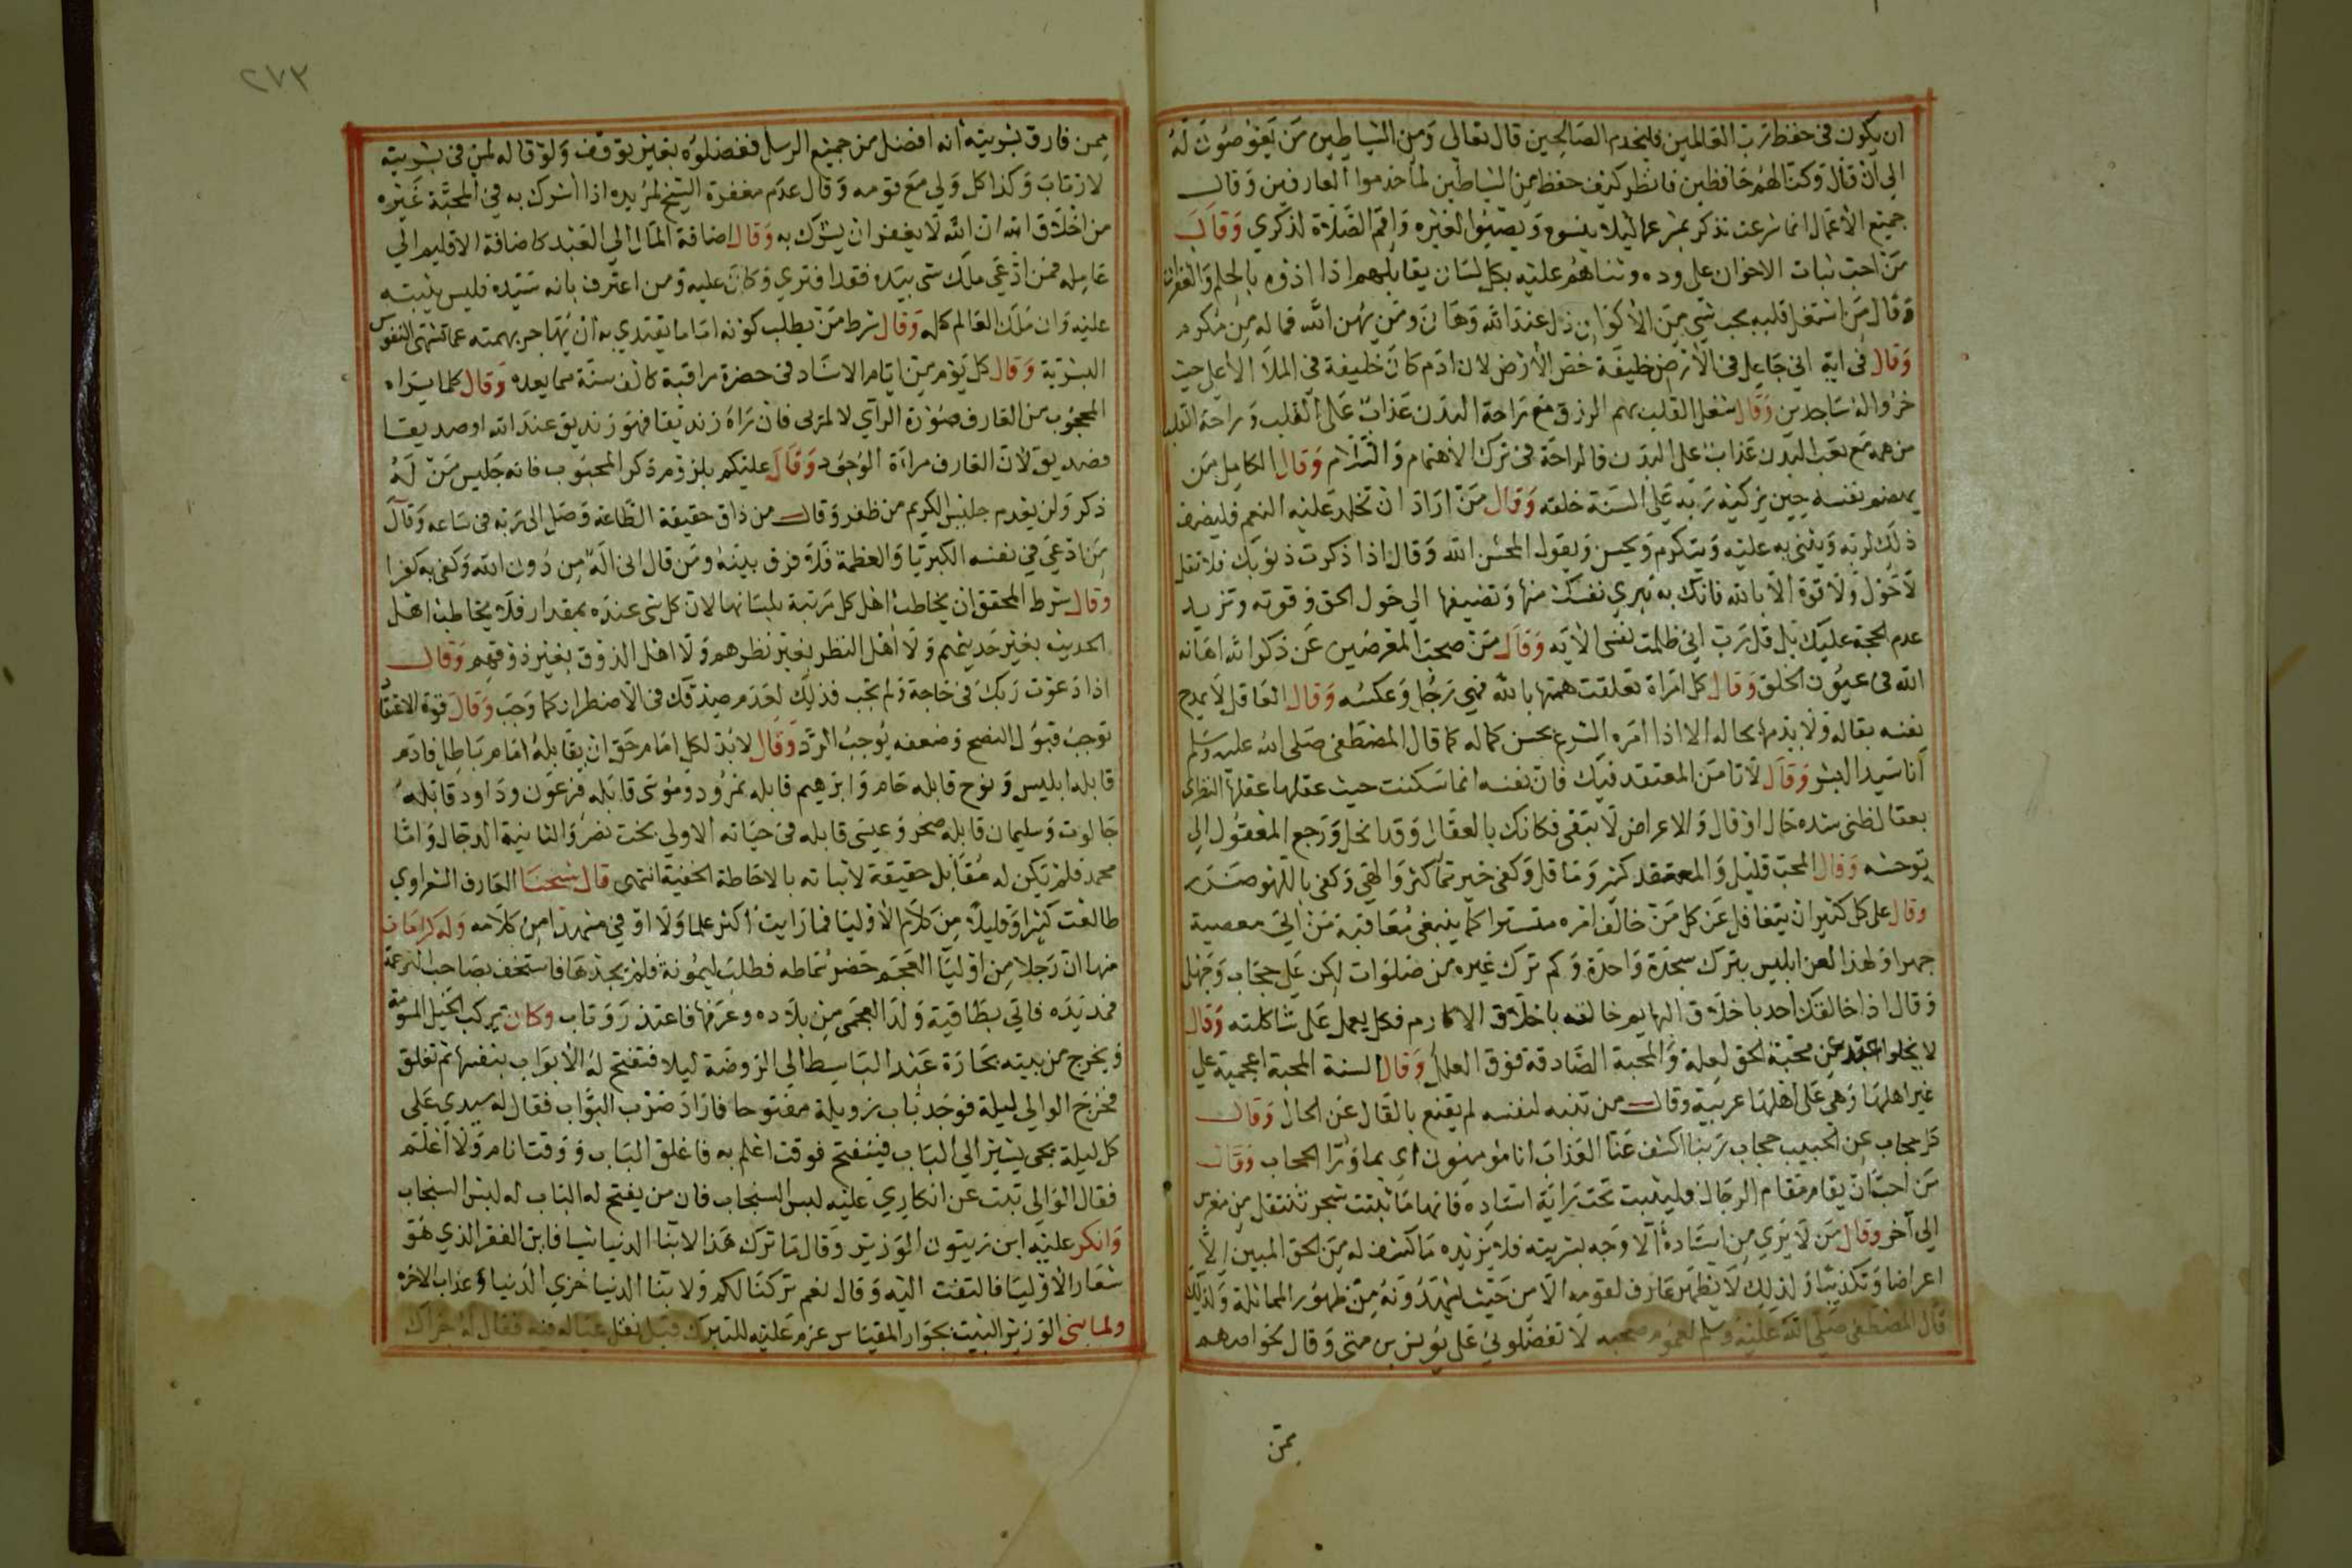 ان يكون في حفظ رب العالمين فليخدم الصالحين قال تعالى ومن الشياطين من يغوصون له
الى ان قال وكنا لهم حافظين فانظر كيف حفظ من الشياطين لما خدموا العارفين وقال
جميع الأعمال انما شرعت تذكر بمشرعها ليلا ينسوه ويصبوا لغيره واقم الصلاة لذكري وقال
من احب ثبات الاخوان على وده وثناهم عليه بكل لسان يقابلهم اذا اذوه بالحلم والغفران
وقال من اشتغل قلبه بحب شي من الأكوان ذل عند الله وهان ومن يهن الله فما له من مكرم
وقال في اية اني جاعل في الأرض خليفة خص الأرض لان ادم كان خليفة في الملأ الأعلى حيث
خروا له ساجدين وقال شغل القلب بهم الرزق مع راحة البدن عذاب على القلب وراحة القلب
من همه مع تعب البدن عذاب على البدن فالراحة في ترك الاهتمام وقال الكامل من
يهضم نفسه حين يزكيه ربه على السنة خلقه وقال من اراد ان تخلد عليه النعم فليضف
ذلك لربه ويثنى به عليه ويتكرم ويحسن ويقول المحسن الله وقال اذا ذكرت ذنوبك فلا تقل
لا حول ولا قوة الا بالله فانك به تبري نفسك منها وتضيفها الى حول الحق وقوته وتزيد
عدم الحجة عليك بل قل رب اني ظلمت نفسي الآيه وقال من صحب المعرضين عن ذكر الله اهانه
الله في عيون الخلق وقال كل امراة تعلقت همتها بالله فهي رجل وعكسه وقال العاقل لا يمدح
نفسه بقاله ولا يذمها بحاله الا اذا امره الشرع بحسن كماله كما قال المصطفى صلى الله عليه وسلم
أنا سيد البشر وقال لا تامن المعتقد فيك فان نفسه انما سكنت حيث عقلها عقلها النظرى
بعقال ظنى سنده حال او قال والاعراض لا تبقى فكانك بالعقال وقد انحل ورجع المعقول الى
توحشه وقال المحب قليل والمعتقد كثير وما قل وكفى خير مما كثر والهى وكفى باللهو
وقال على كل كبير ان يتغافل عن كل من خالف امره متسترا كما ينبغى معاقبة من اتى معصية
جهرا ولهذا لعن ابليس بترك سجدة واحدة وكم ترك غيره من صلوات لكن على حجاب وجهل
وقال اذا خالقك احد باخلاق البهايم خالقه باخلاق الاكارم فكل يعمل على شاكلته وقال
لا يخلوا عبد عن محبة الحق لعلة والمحبة الصادقة فوق العلل وقال السنة المحبة اعجمية على
غير اهلها وهى على اهلها عربية وقال من تنبه لنفسه لم يقنع بالقال عن الحال وقال
كل حجاب عن الحبيب حجاب ربنا اكشف عنا العذاب انا مؤمنون اى بما ورا الحجاب وقال
من احب ان يقام مقام الرجال فليثبت تحت راية استاده فانها ما نبتت شجرة تنتقل من مغرس
الى آخر وقال من لا يرى من استاده الا وجه بشريته فلا يزيده ما كشف له من الحق المبين الا
اعراضا وتكذيبا ولذلك لا يظهر عارف لقومه الا من حيث يشهدونه من ظهور المماثلة ولذلك
قال المصطفى صلى الله عليه وسلم لعموم صحبه لا تفضلونى على يونس بن متى وقال لخواصهم
ممن
٢٧٣
ممن فارق بشريته أنه أفضل من جميع الرسل ففضلوه بغير توقف ولو قاله لمن في بشريته
لارتاب وكذا كل ولي مع قومه وقال عدم مغفرة الشيخ لمريده اذا أشرك به في المحبة غيره
من اخلاق الله ان الله لا يغفر ان يشرك به وقال اضافة المال الى العبد كاضافة الاقليم الى
عامله فمن ادعى ملك شى بيده فقد افترى وكان عليه ومن اعترف بانه سيده فليس يثبته
عليه وان ملك العالم كله وقال شرط من يطلب كونه اماما يقتدي به ان يهاجر بهمته عما تشتهى النفوس
البشرية وقال كل يوم من ايام الاستاد في حضرة مراقبة كالف سنة مما يعده وقال كلما يراه
المحجوب من العارف صورة الرآي لا المرئي فان راه زنديقا فهو زنديق عند الله او صديقا
فصديق لان العارف مراءة الوجود وقال عليكم بلزوم ذكر المحبوب فانه جليس من له
ذكر ولن يعدم جليس الكريم من ظفر وقال من ذاق حقيقة الطاعة وصل الى ربه في ساعه وقال
من ادعى في نفسه الكبريا والعظمة فلا فرق بينه ومن قال اني اله من دون الله وكفى به كفرا
وقال شرط المحقق ان يخاطب اهل كل مرتبة بلسانها لان كل شى عنده بمقدار فلا يخاطب اهل
الحديث بغير حديثهم ولا أهل النظر بغير نظرهم ولا اهل الذوق بغير ذوقهم وقال
اذا دعوت ربك في حاجة ولم تجب فذلك لعدم صدقك في الاضطرار كما وجب وقال قوة الاعتقاد
توجب قبول النصح وضعفه يوجب الرد وقال لا بد لكل امام حق ان يقابله امام باطل فادم
قابله ابليس ونوح قابله حام وابرهيم قابله نمرود وموسى قابله فرعون وداود قابله
جالوت وسليمان قابله صخر وعيسى قابله في حياته الاولى بخت نصر والثانية الدجال واما
محمد فلم يكن له مقابل حقيقة لاتيانه بالاحاطة الحنفية انتهى قال شيخنا العارف الشعراوي
طالعت كثيرا وقليلا من كلام الأوليا فما رايت أكثر علما ولا اوفى مشهدا من كلامه وله كرامات
منها ان رجلا من اوليا العجم حضر سماطه فطلب ليمونة فلم يجدها فاستخف بصاحب الترجمة
فمد يده فاتى بطاقية ولد العجمى من بلاده وعرفها فاعتذر وتاب وكان يركب الخيل المسومة
ويخرج من بيته بحارة عبد الباسط الى الروضة ليلا فتفتح له الأبواب بنفسها ثم تغلق
فخرج الوالى ليلة فوجد باب زويلة مفتوحا فاراد ضرب البواب فقال له سيدى على
كل ليلة يجى يشير الى الباب فينفتح فوقت اعلم به فاغلق الباب ووقتا نام ولا أعلم
فقال الوالى تبت عن انكاري عليه لبس السنجاب فان من يفتح له الباب له لبس السنجاب
وانكر عليه ابن زيتون الوزير وقال ما ترك هذا لابنا الدنيا شيا فاين الفقر الذي هو
شعار الأوليا فالتفت اليه وقال نعم تركنا لكم ولابنا الدنيا خزي الدنيا وعذاب الآخره
ولما بنى الوزير البيت بجوار المقياس عزم عليه للتبرك قبل نقل عياله فيه فقال له جزاك